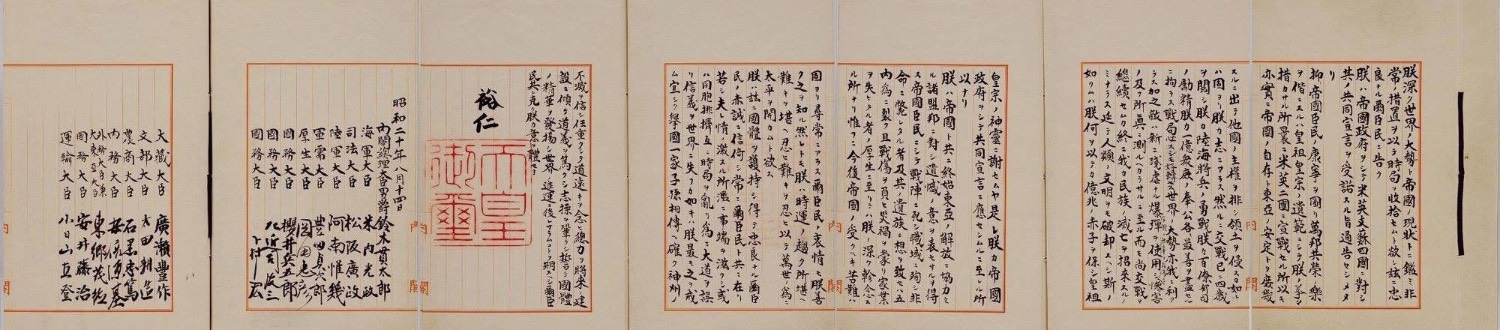 朕深ク世界ノ大勢ト帝國ノ現状トニ鑑ミ非
常ノ措置ヲ以テ時局ヲ收拾セムト欲シ茲ニ忠
良ナル爾臣民ニ告ク
朕ハ帝國政府ヲシテ米英支蘇四國ニ對シ
其ノ共同宣言ヲ受諾スル旨通告セシメタ
リ
抑〻帝國臣民ノ康寧ヲ圖リ萬邦共榮ノ樂
ヲ偕ニスルハ皇祖皇宗ノ遺範ニシテ朕ノ拳〻
措カサル所曩ニ米英二國ニ宣戰セル所以モ
亦實ニ帝國ノ自存ト東亞ノ安定トヲ庶幾
スルニ出テ他國ノ主權ヲ排シ領土ヲ侵スカ如
キハ固ヨリ朕カ志ニアラス然ルニ交戰已ニ四歳
ヲ閲シ朕カ陸海將兵ノ勇戰朕カ百僚有司
ノ勵精朕カ一億衆庶ノ奉公各〻最善ヲ盡セル
ニ拘ラス戰局必スシモ好轉セス世界ノ大勢亦我ニ利ア
ラス加之敵ハ新ニ殘虐ナル爆彈ヲ使用シテ頻ニ無辜ヲ殺傷シ慘害
ノ及フ所眞ニ測ルヘカラサルニ至ル而モ尚交戰ヲ
繼續セムカ終ニ我カ民族ノ滅亡ヲ招來スルノ
ミナラス延テ人類ノ文明ヲモ破却スヘシ斯ノ
如クムハ朕何ヲ以テカ億兆ノ赤子ヲ保シ皇祖
皇宗ノ神靈ニ謝セムヤ是レ朕カ帝國
政府ヲシテ共同宣言ニ應セシムルニ至レル所
以ナリ
朕ハ帝國ト共ニ終始東亞ノ解放ニ協力セ
ル諸盟邦ニ對シ遺憾ノ意ヲ表セサルヲ得
ス帝國臣民ニシテ戰陣ニ死シ職域ニ殉シ非
命ニ斃レタル者及其ノ遺族ニ想ヲ致セハ五
内爲ニ裂ク且戰傷ヲ負ヒ災禍ヲ蒙リ家業
ヲ失ヒタル者ノ厚生ニ至リテハ朕ノ深ク軫念ス
ル所ナリ惟フニ今後帝國ノ受クヘキ苦難ハ
固ヨリ尋常ニアラス爾臣民ノ衷情モ朕善
ク之ヲ知ル然レトモ朕ハ時運ノ趨ク所堪ヘ
難キヲ堪ヘ忍ヒ難キヲ忍ヒ以テ萬世ノ爲ニ
太平ヲ開カムト欲ス
朕ハ茲ニ國體ヲ護持シ得テ忠良ナル爾臣
民ノ赤誠ニ信倚シ常ニ爾臣民ト共ニ在リ
若シ夫レ情ノ激スル所濫ニ事端ヲ滋クシ或
ハ同胞排擠互ニ時局ヲ亂リ爲ニ大道ヲ誤
リ信義ヲ世界ニ失フカ如キハ朕最モ之ヲ戒
ム宜シク擧國一家子孫相傳ヘ確ク神州ノ
不滅ヲ信シ任重クシテ道遠キヲ念ヒ總力ヲ將來ノ建
設ニ傾ケ道義ヲ篤クシ志操ヲ鞏クシ誓テ國體
ノ精華ヲ發揚シ世界ノ進運ニ後レサラムコトヲ期スヘシ爾臣
民其レ克ク朕カ意ヲ體セヨ
裕仁
天皇
御璽
昭和二十年八月十四日
内閣總理大臣男爵 鈴木貫太郎
海軍大臣 米内光政
司法大臣 松阪廣政
陸軍大臣 阿南惟幾
軍需大臣 豐田貞次郎
厚生大臣 岡田忠彦
國務大臣 櫻井兵五郎
國務大臣 左近司政三
國務大臣 下村宏
大藏大臣 廣瀬豐作
文部大臣 太田耕造
農商大臣 石黒忠篤
内務大臣 安倍源基
外務大臣兼大東亞大臣 東郷茂德
國務大臣 安井藤治
運輸大臣 小日山直登